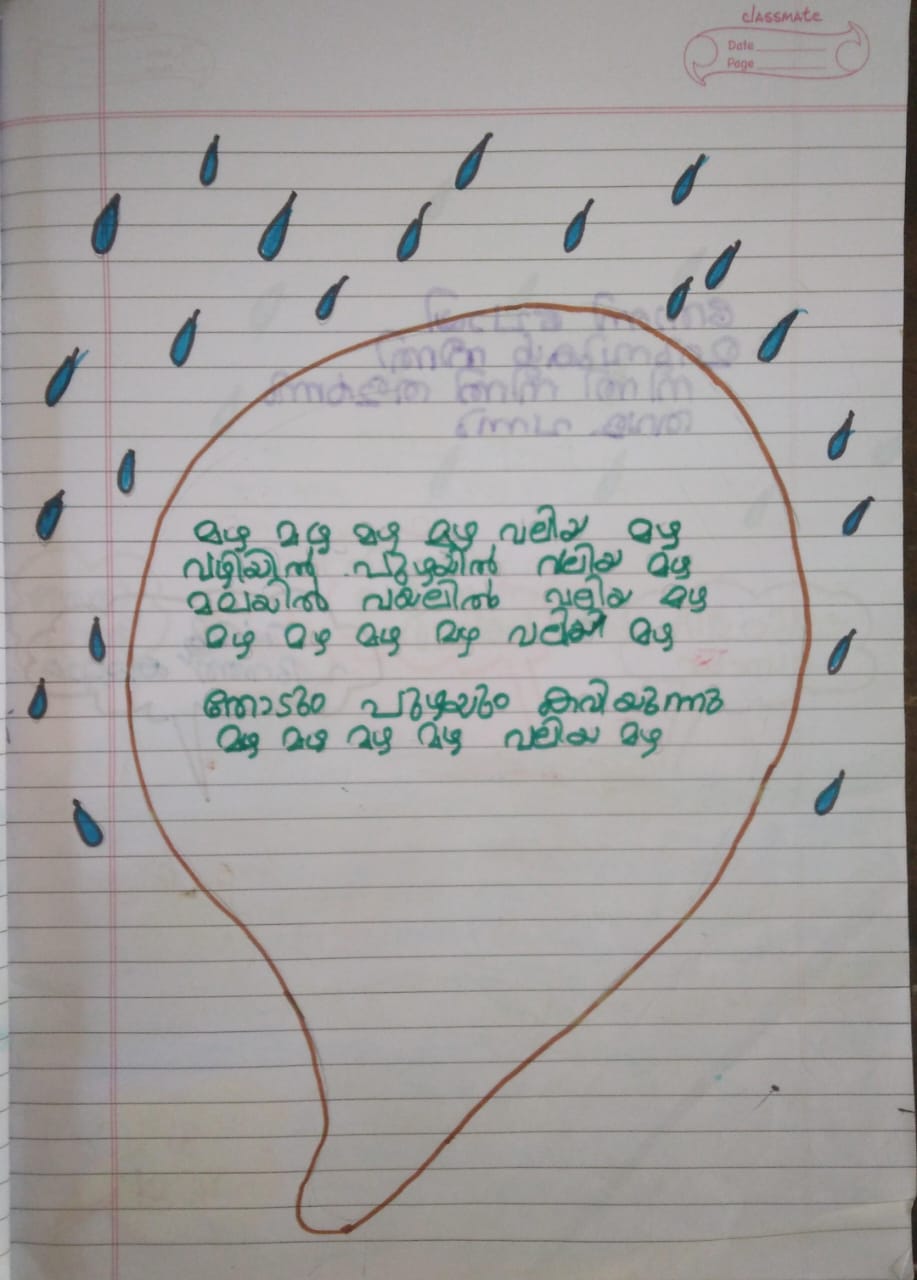 classmate
Date
Page
മഴ മഴ മഴ മഴ വലിയ മഴ
വഴിയിൽ പുഴയിൽ വലിയ മഴ
മലയിൽ വയലിൽ വലിയ മഴ
മഴ മഴ മഴ മഴ വലിയ മഴ
തോടും പുഴയും കവിയുന്നു
മഴ മഴ മഴ മഴ വലിയ മഴ